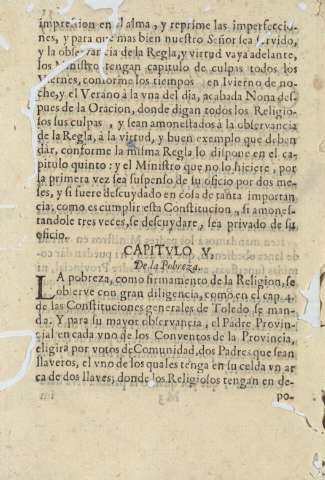 impression en el alma, y reprime las imperfeccio-
nes, y para que mas bien nuestro Señor sea servido,
y la observancia de la Regla, y virtud vaya adelante,
los Ministro tengan capitulo de culpas todos los
Viernes, conforme los tiempos en Ivierno de no-
che, y el Verano à la vna del dia, acabada Nona des
pues de la Oracion, donde digan todos los Religio-
sos sus culpas, y sean amonestados à la observancia
de la Regla, à la virtud, y buen exemplo que deben
dàr, conforme la misma Regla lo dispone en el ca-
pitulo quinto: y el Ministro que no lo hiciere, por
la primera vez sea suspenso de su oficio por dos me-
ses, y si fuere descuydado en cosa de tanta importan
cia, como es cumplir esta Constitucion, si amones-
tandole tres veces, se descuydare, sea privado de su
oficio.
CAPITVLO V.
De la Pobreza.
LA pobreza, como firmamento de la Religion, se
observe con gran diligencia, como en el cap. 4.
de las Constituciones generales de Toledo se man-
da. Y para su mayor observancia, el Padre Provin-
cial en cada vno de los Conventos de la Provincia,
eligirà por votos de Comunidad, dos Padres que sean
llaveros, el vno de los quales tenga en su celda vn ar
ca de dos llaves; donde los Religiosos tengan en de-
po-